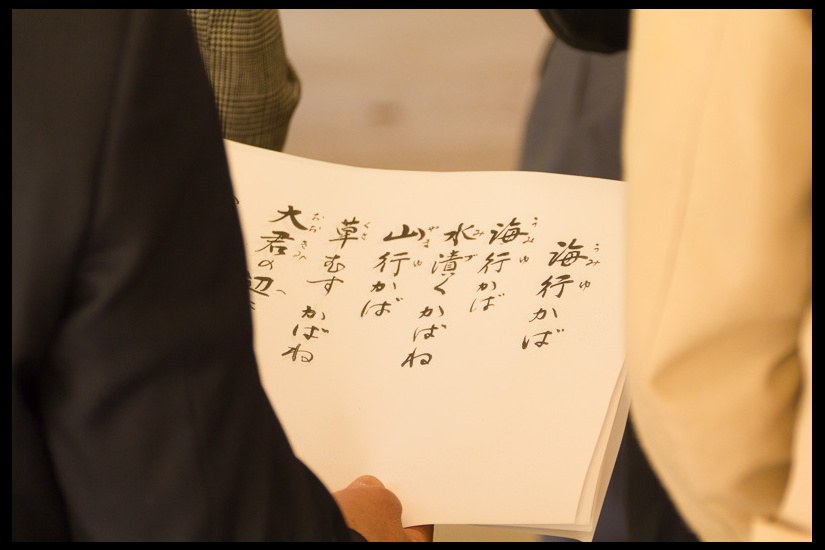 海行かば
海行かば
水漬くかばね
山行かば
草むす かばね
大君の辺